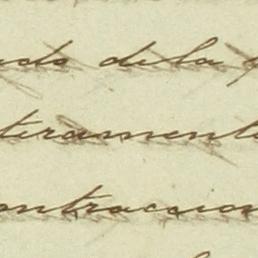 dela
teramente
ontraccion